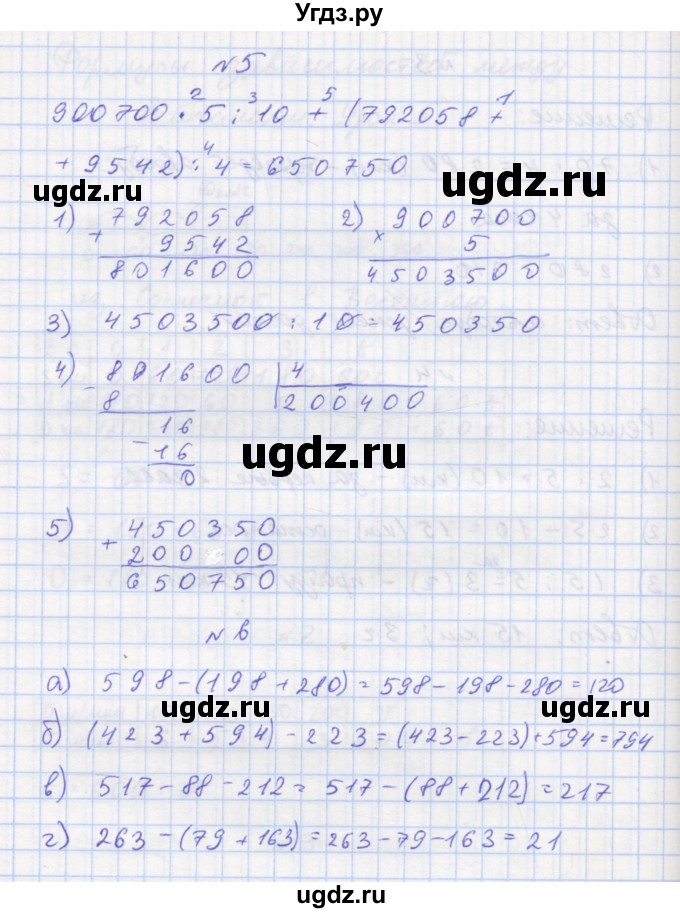 Угдз.ру
№5
900700 · 5 : 10 + (792058 +
2 3 5 1
+ 9542) : 4 = 650750
4
1) 792058
+ 9542
801600
2) 900700
× 5
4503500
3) 4503500 : 10 = 450350
4) 801600 | 4
- 8 200400
16
- 16
0
5) 450350
+ 200 00
650750
№6
а) 598 - (198 + 280) = 598 - 198 - 280 = 120
б) (423 + 594) - 223 = (423 - 223) + 594 = 794
в) 517 - 88 - 212 = 517 - (88 + 212) = 217
г) 263 - (79 + 163) = 263 - 79 - 163 = 21
ugdz.ru
ugdz.ru
ugdz.ru
ugdz.ru
ugdz.ru
ugdz.ru
ugdz.ru
ugdz.ru
ugdz.ru
ugdz.ru